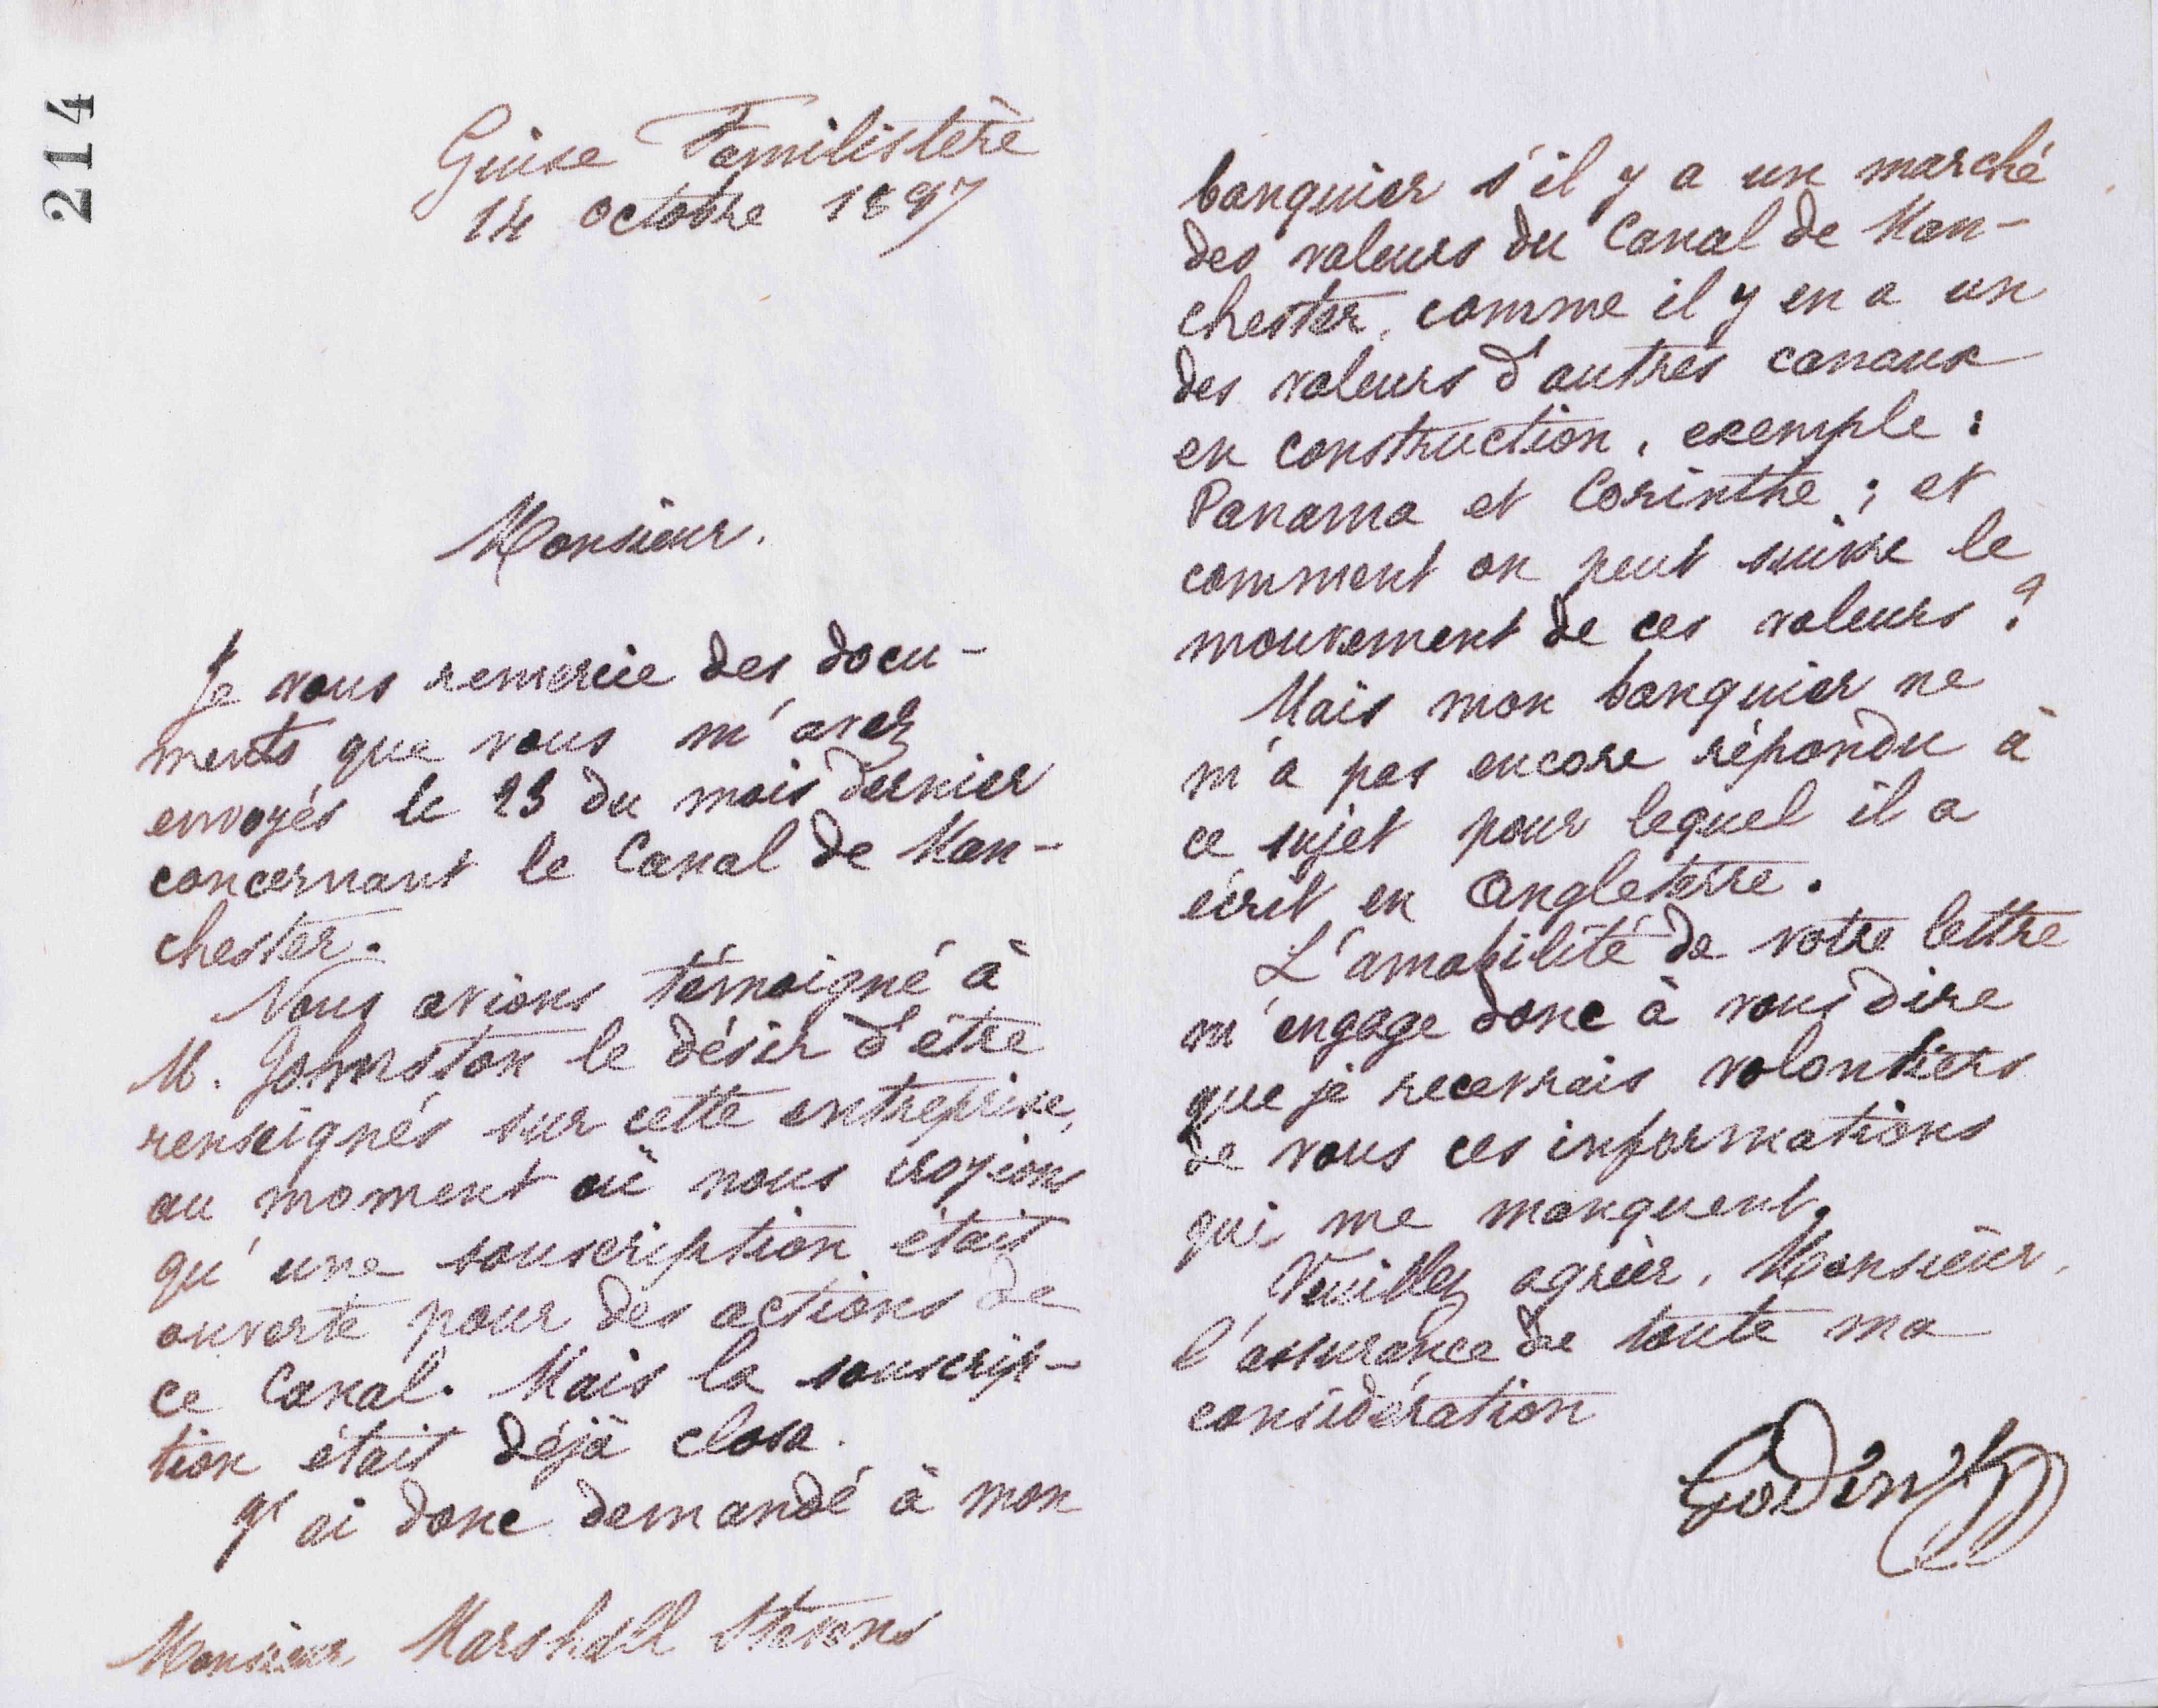 214
Guise Familistère
14 octobre 1897
Monsieur.
Je vous remercie des docu-
ments que vous m'avez
envoyés le 23 du mois dernier
concernant le Canal de Man-
chester.
Nous avions témoigné à
M. Johnston le désir d'être
renseignés sur cette entreprise,
au moment où nous croyions
qu'une souscription était
ouverte pour des actions de
ce Canal. Mais la souscrip-
tion était déjà close.
J'ai donc demandé à mon
Monsieur Marshall Stevens
banquier s'il y a un marché
des valeurs du Canal de Man-
chester, comme il y en a un
des valeurs d'autres canaux
en construction, exemple :
Panama et Corinthe ; et
comment on peut suivre le
mouvement de ces valeurs ?
Mais mon banquier ne
m'a pas encore répondu à
ce sujet pour lequel il a
écrit en Angleterre.
L'amabilité de votre lettre
m'engage donc à vous dire
que je recevrais volontiers
de vous ces informations
qui me manquent.
Veuillez agréer, Monsieur,
l'assurance de toute ma
considération
Godin